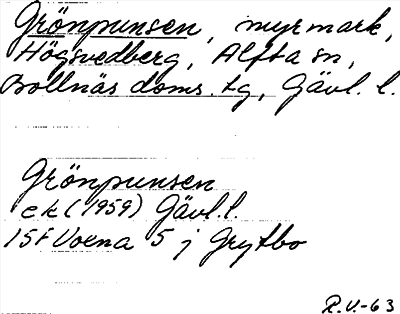 Grönpunsen, myrmark,
Högsvedberg, Alfta sn,
Bollnäs doms. tg, Gävl. l.
Grönpunsen
ek (1959) Gävl. l.
15F Voxna 5 j Grytbo
R.V.-63